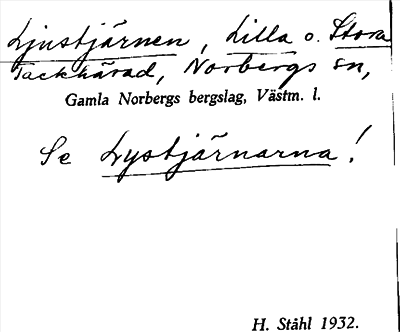 Ljustjärnen, Lilla o. Stora
Tackhärad, Norbergs sn,
Gamla Norbergs bergslag, Västm. l.
Se Lystjärnarna!
H. Ståhl 1932.